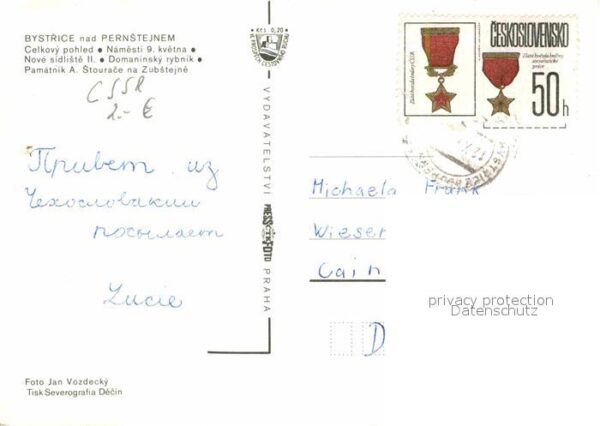 BYSTŘICE nad PERNŠTEJNEM
Celkový pohled • Náměstí 9. května •
Nové sídliště II. • Domaninský rybník •
Památník A. Štourače na Zubštejně
ČSSR
2.- €
Привет из
Чехословакии
посылает
Lucie
Foto Jan Vozdecký
Tisk Severografia Děčín
Kčs 0,20
VYDAVATELSTVÍ
PRESSFOTO
PRAHA
ČESKOSLOVENSKO
50h
Michaela Frank
Wieser
Cain
privacy protection
Datenschutz
D